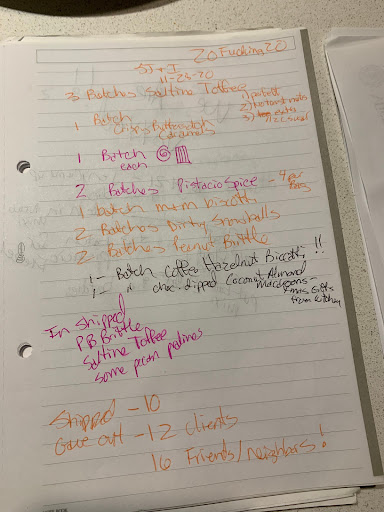 20 Fucking 20
SJ + J
11-28-20
3 Batches Saltine Toffee
1) perfect
2) not ant nuts
3)
1 Batch
Crispy Butterscotch
Caramels
1 Batch
each
2 Batches Pistacio Spice - 4 per
1 batch m+m biscotti
2 Batches Dirty Snowballs
2 Batches Peanut Brittle
1 - Batch Coffee Hazelnut Biscotti !!
1 - " choc. dipped Coconut Almond
macaroons -
xmas Gifts
from kitchen
In Shipped
P.B. Brittle
Saltine Toffee
Some pecan pralines
Shipped - 10
Gave out - 12 clients
16 Friends/neighbors!